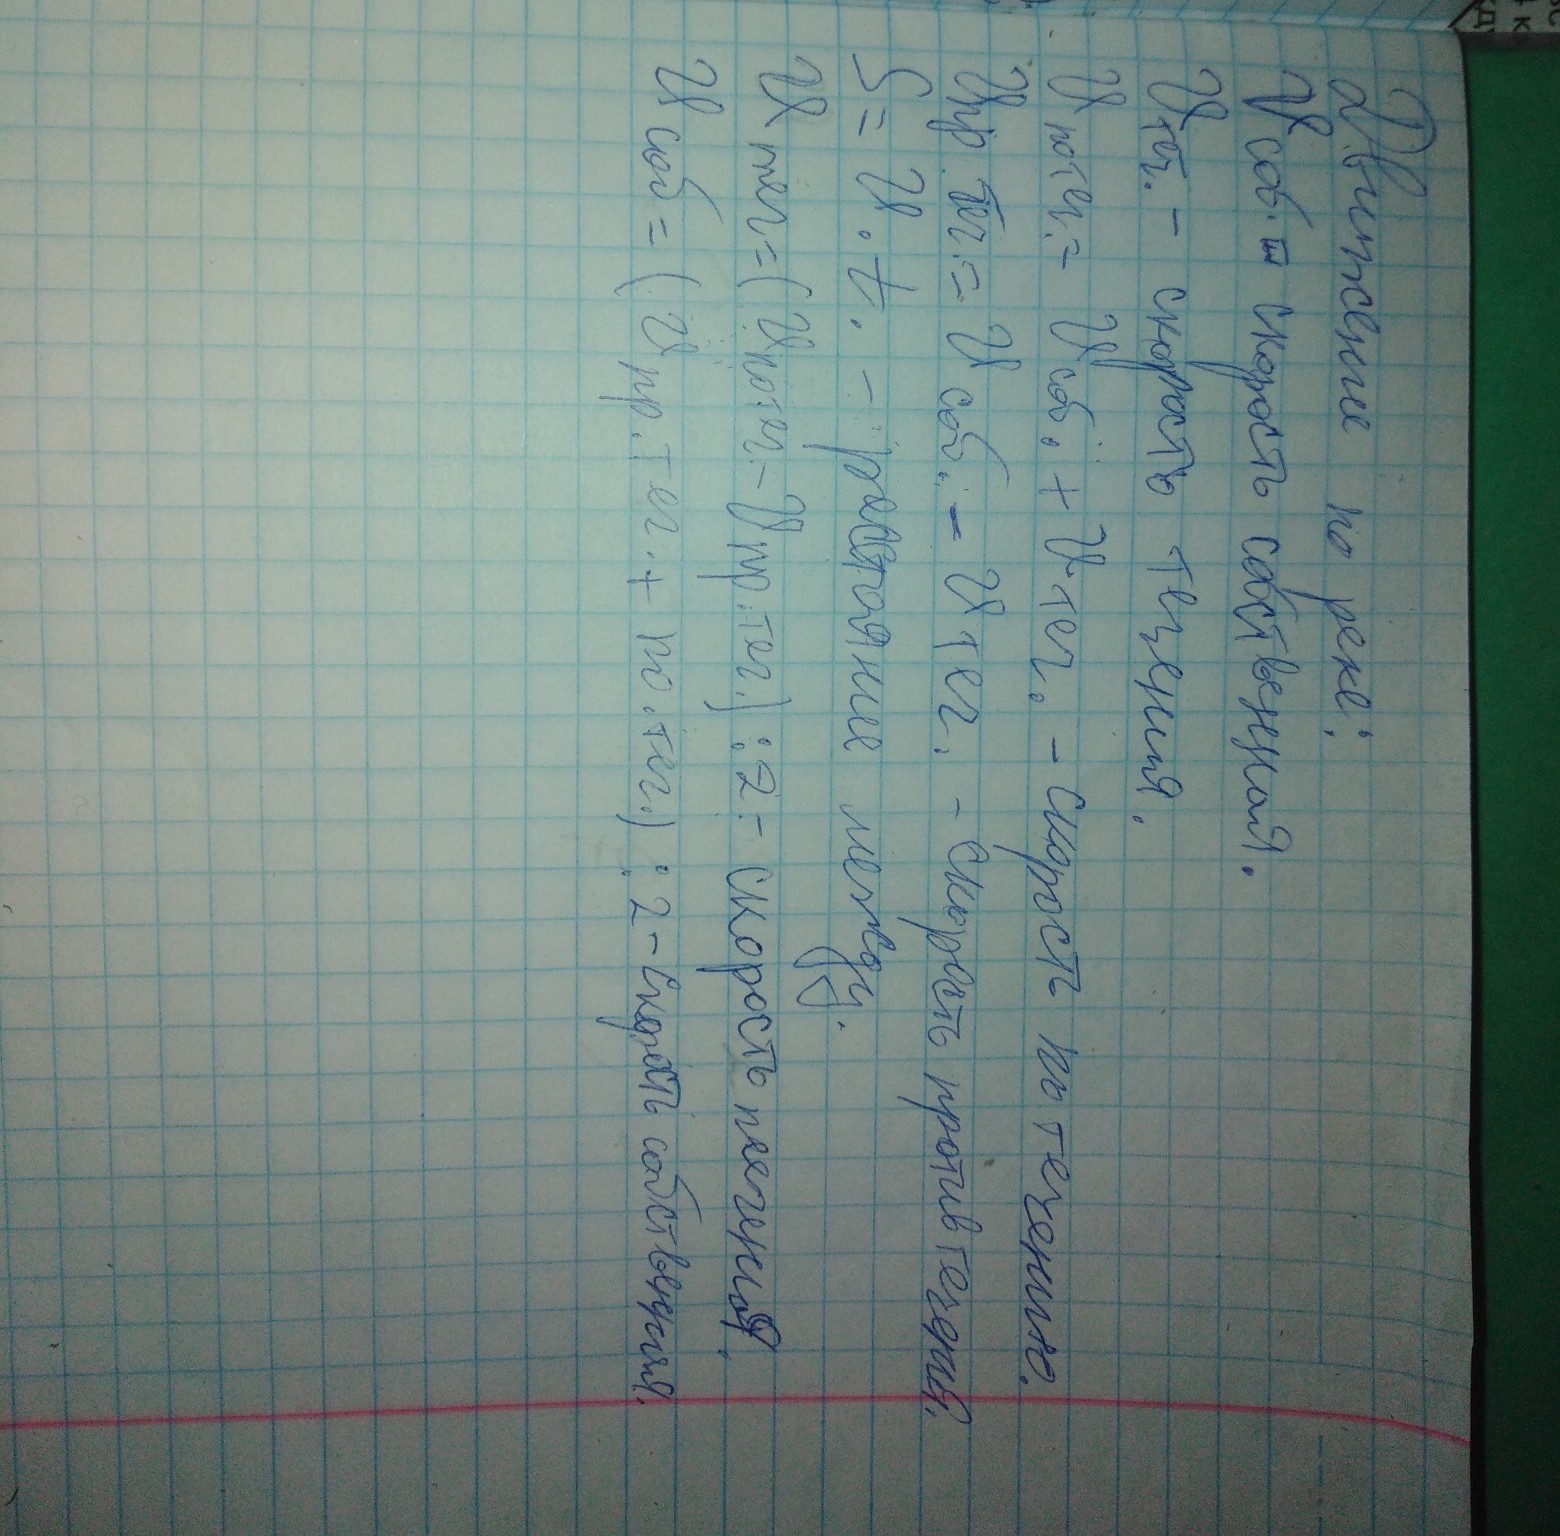 Движение по реке:
V соб. – скорость собственная.
V теч. – скорость течения.
V по теч. = V соб. + V теч. – скорость по течению.
V пр. теч. = V соб. – V теч. – скорость против течения.
S = V . t. – расстояние между.
V теч = (V по теч. – V пр. теч.) : 2 – скорость течения.
V соб = (V пр. теч. + по. теч.) : 2 – скорость собственная.